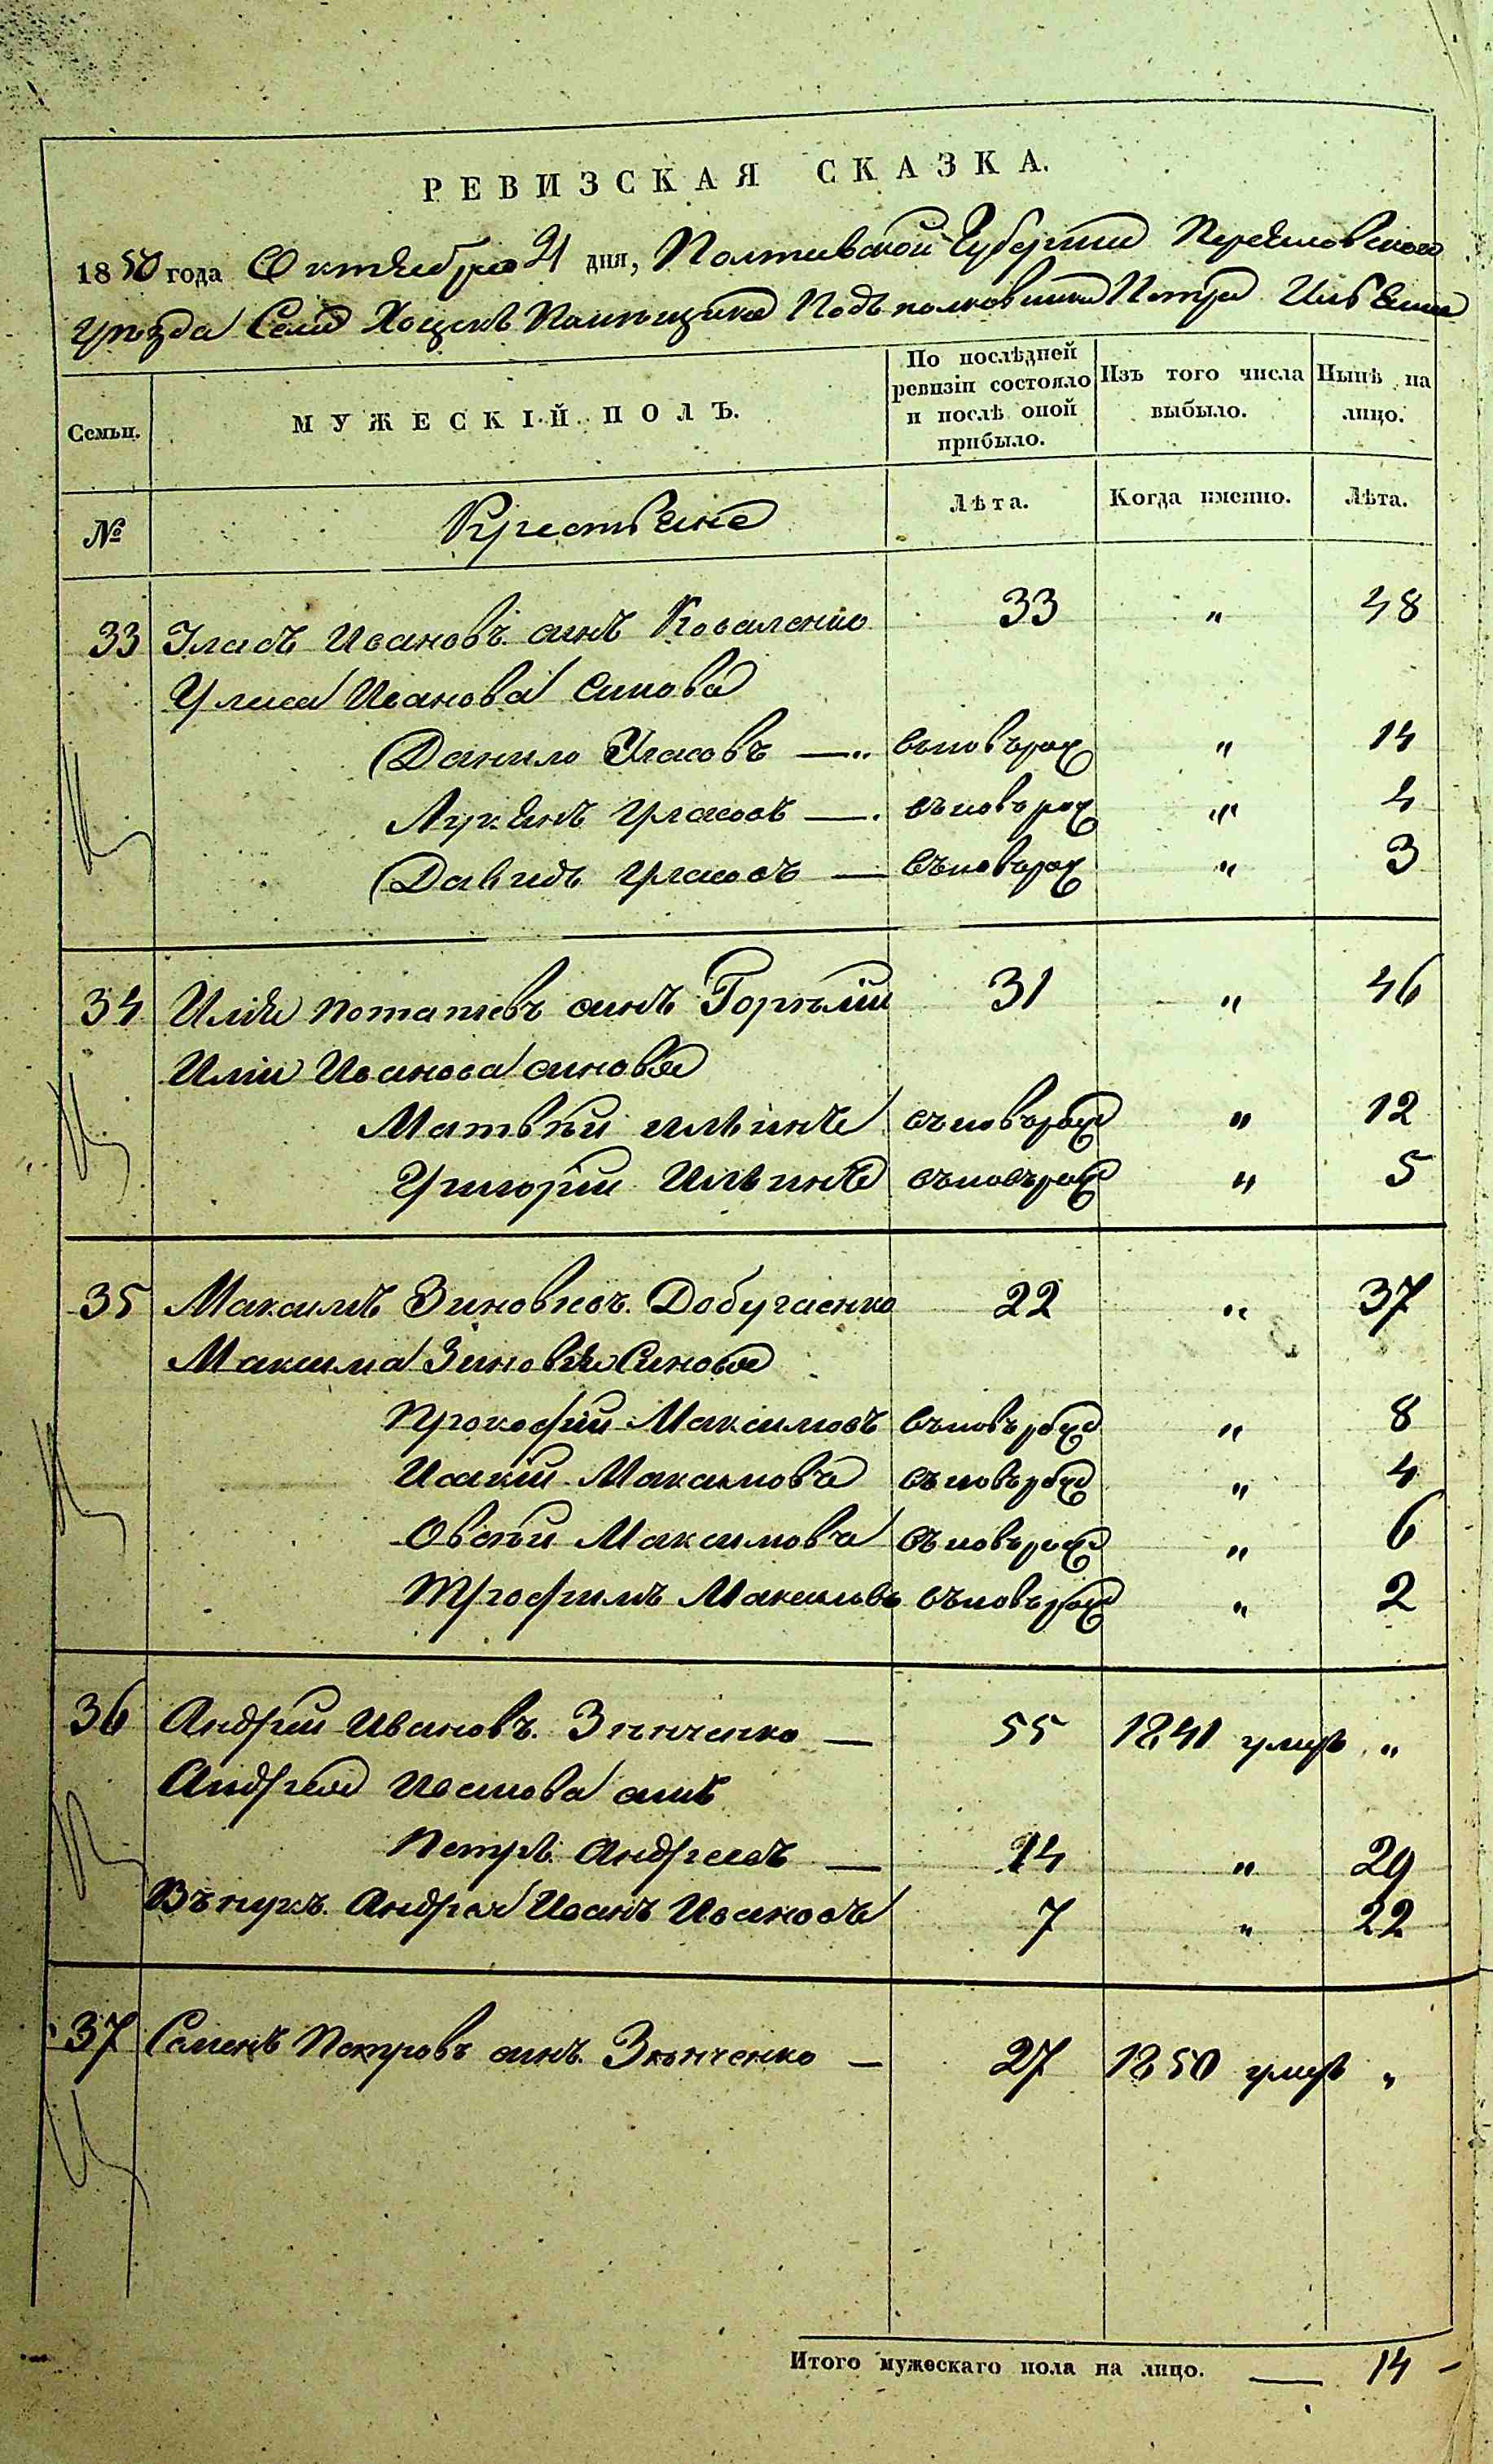 РЕВИЗСКАЯ СКАЗКА.
1850 года Октября 21 дня, Полтавской Губернии Переяловского
уезда Села Хоцекъ Помѣщика Подполковника Петра
Семьи. МУЖЕСКІЙ ПОЛЪ. По послѣдней ревизіи состояло и послѣ оной прибыло. Изъ того числа выбыло. Нынѣ на лицо.
№ Крестьяне Лѣта. Когда именно. Лѣта.
33 Уласъ Ивановъ синъ Коваленко 33 " 48
Уласа Иванова Синова
Данило Уласовъ — въновърож " 14
Лукянъ Уласовъ — въновърож " 4
Давидъ Уласовъ — въновърож " 3
34 Илія Потапіевъ синъ 31 " 46
Иліи Иванова синовя
Матвѣи Ильинъ въновърож " 12
Григоріи Ильинъ въновърож " 5
35 Максимъ Зиновіевъ Добугаенко 22 " 37
Максима Зиновія Синовя
Прокофіи Максимовъ въновърож " 8
Исакіи Максимовъ въновърож " 4
Овсѣи Максимовъ въновърож " 6
Трофимъ Максимовъ въновърож " 2
36 Андріи Ивановъ Зѣнченко — 55 1841 умеръ "
Андрея Иванова синъ
Петръ Андреевъ — 14 " 29
Вънукъ Андрея Иванъ Ивановъ 7 " 22
37 Семенъ Петровъ синъ Зѣнченко — 27 1850 умеръ "
Итого мужескаго пола на лицо. — 14 -